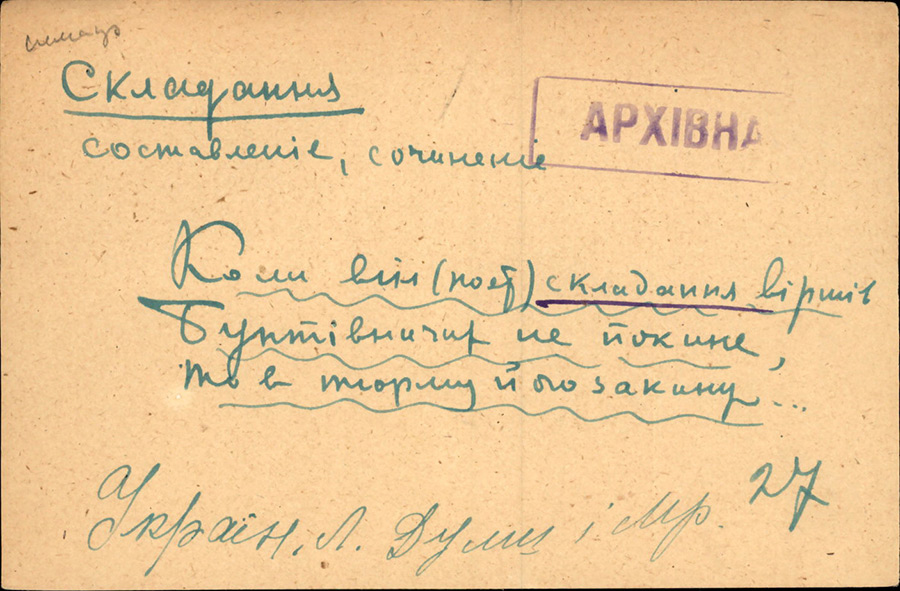 Складання
АРХІВНА
составленіе, сочиненіе
Коли він (поет) складання віршів
Бунтівничих не покине,
то в тюрму його закину...
Україн. Л. Думи і мр. 27